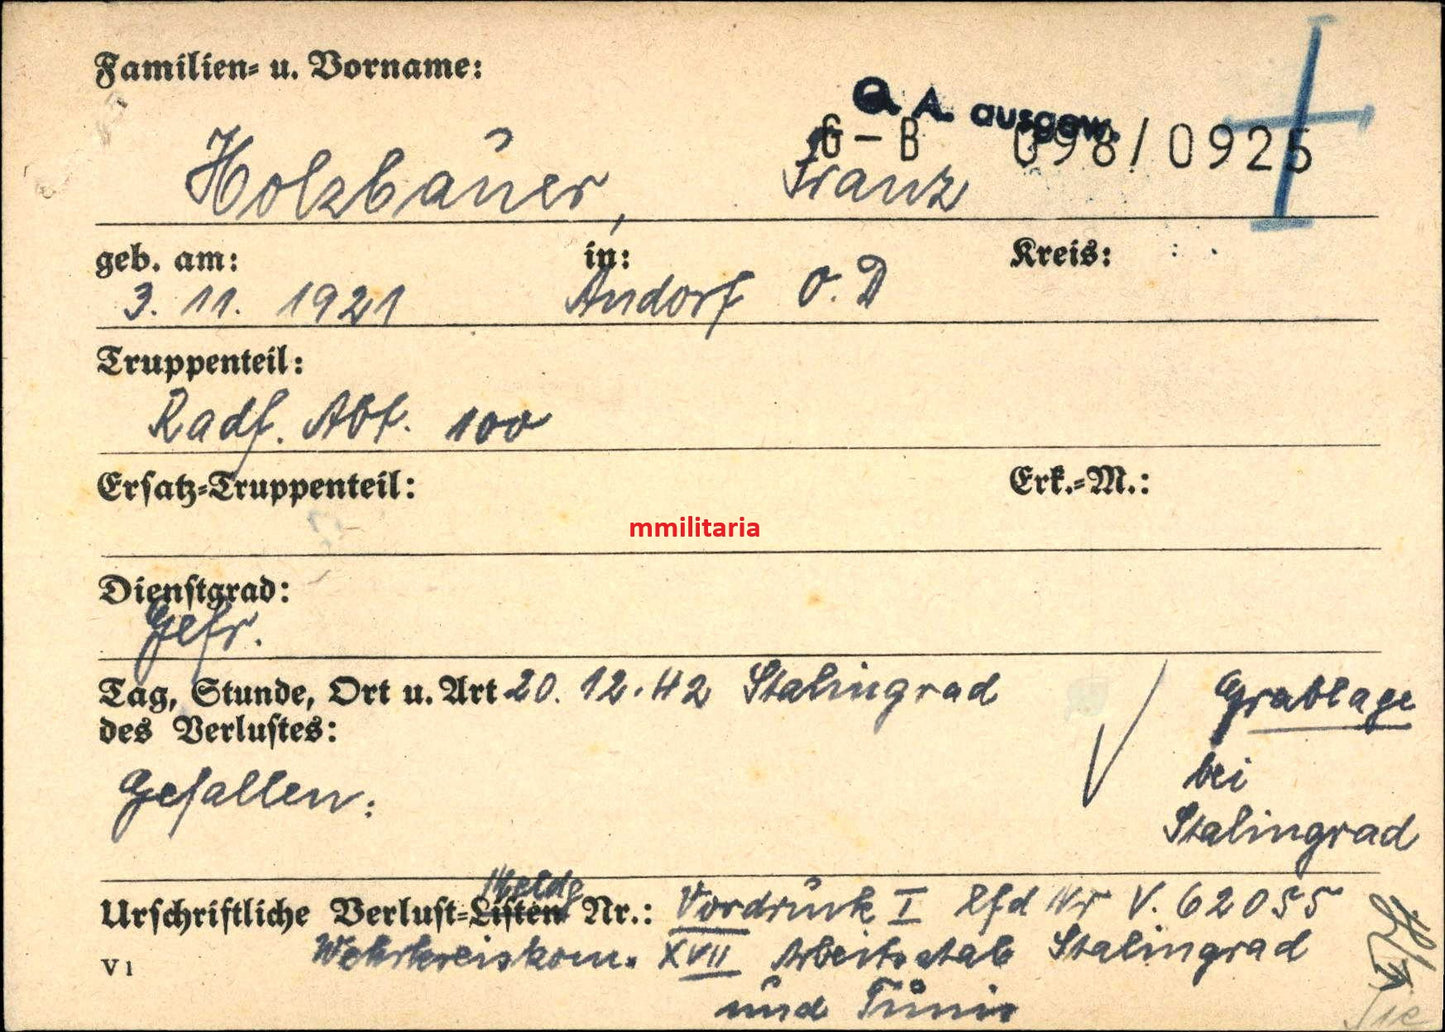 Familien- u. Vorname:
a. A. ausgew.
G-B 098/0925
Holzbauer, Franz
geb. am: in: Kreis:
3. 11. 1921 Andorf O. D
Truppenteil:
Radf. Abt. 100
Ersatz-Truppenteil: Erk.-M.:
mmilitaria
Dienstgrad:
Gefr.
Tag, Stunde, Ort u. Art 20. 12. 42 Stalingrad
des Verlustes:
Grablage
bei
Stalingrad
Gefallen.
Meldg
Urschriftliche Verlust-Listen Nr.: Vordruck I Lfd Nr V. 62055
Wehrkreiskom. XVII Arbeitsstab Stalingrad
und Tunis
V 1